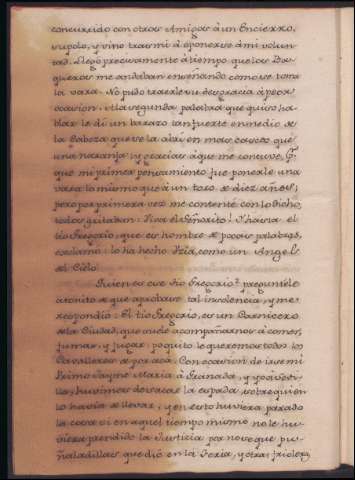 concurrido con otras Amigas à un Encierro,
supolo, y vino tras mi à oponerse à mi volun-
tad. Llegó precisamente à tiempo que los Va-
queros me andaban enseñando como se toma
la vara. No pudo traerle su desgracia à peor
ocasion. A la segunda palabra que quiso ha-
blar le dí un barazo tan fuerte enmedio de
la Cabeza que se la abrí en mas cascos que
una naranja y gracias à que me contuve, Pr.
que mi primer pensamiento fue ponerle una
vara lo mismo que à un toro de diez años;
pero por primera vez me contenté con lo dicho,
todos gritaban: Viva el Señorito! Y hasta el
tio Gregorio, que es hombre de pocas palabras,
exclamó: lo ha hecho Vzia, como un Angel
del Cielo.
Quien es ese tio Gregorio? preguntéle
atonito de que aprobase tal insolencia, y me
respondió: El tio Gregorio, es un Carnicero
de la Ciudad, que suele acompañarnos à comer,
fumar, y jugar: poquito le queremos todos los
Cavalleros de por acá. Con ocasion de irse mi
Primo Jayme Maria à Granada, y yo à Sevi-
lla, huvimos de sacar la espada, sobre quien
lo havia de llevar, y en esto huviera parado
la cosa si en aquel tiempo mismo no le hu-
viera prendido la Justicia por no se que pu-
ñaladillas que dió en la Feria, y otras frioleras